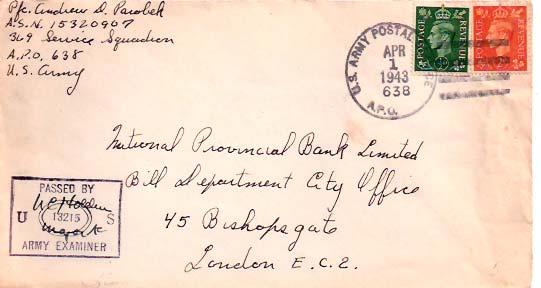 Pfc. Andrew D. Parobek
A.S.N. 15320907
369 Service Squadron
A.P.O. 638
U.S. Army
U.S. ARMY POSTAL
APR
1
1943
638
A.P.O.
POSTAGE REVENUE
POSTAGE REVENUE
National Provincial Bank Limited
Bill Department City Office
45 Bishopsgate
London E.C.2.
PASSED BY
U 13215 S
ARMY EXAMINER